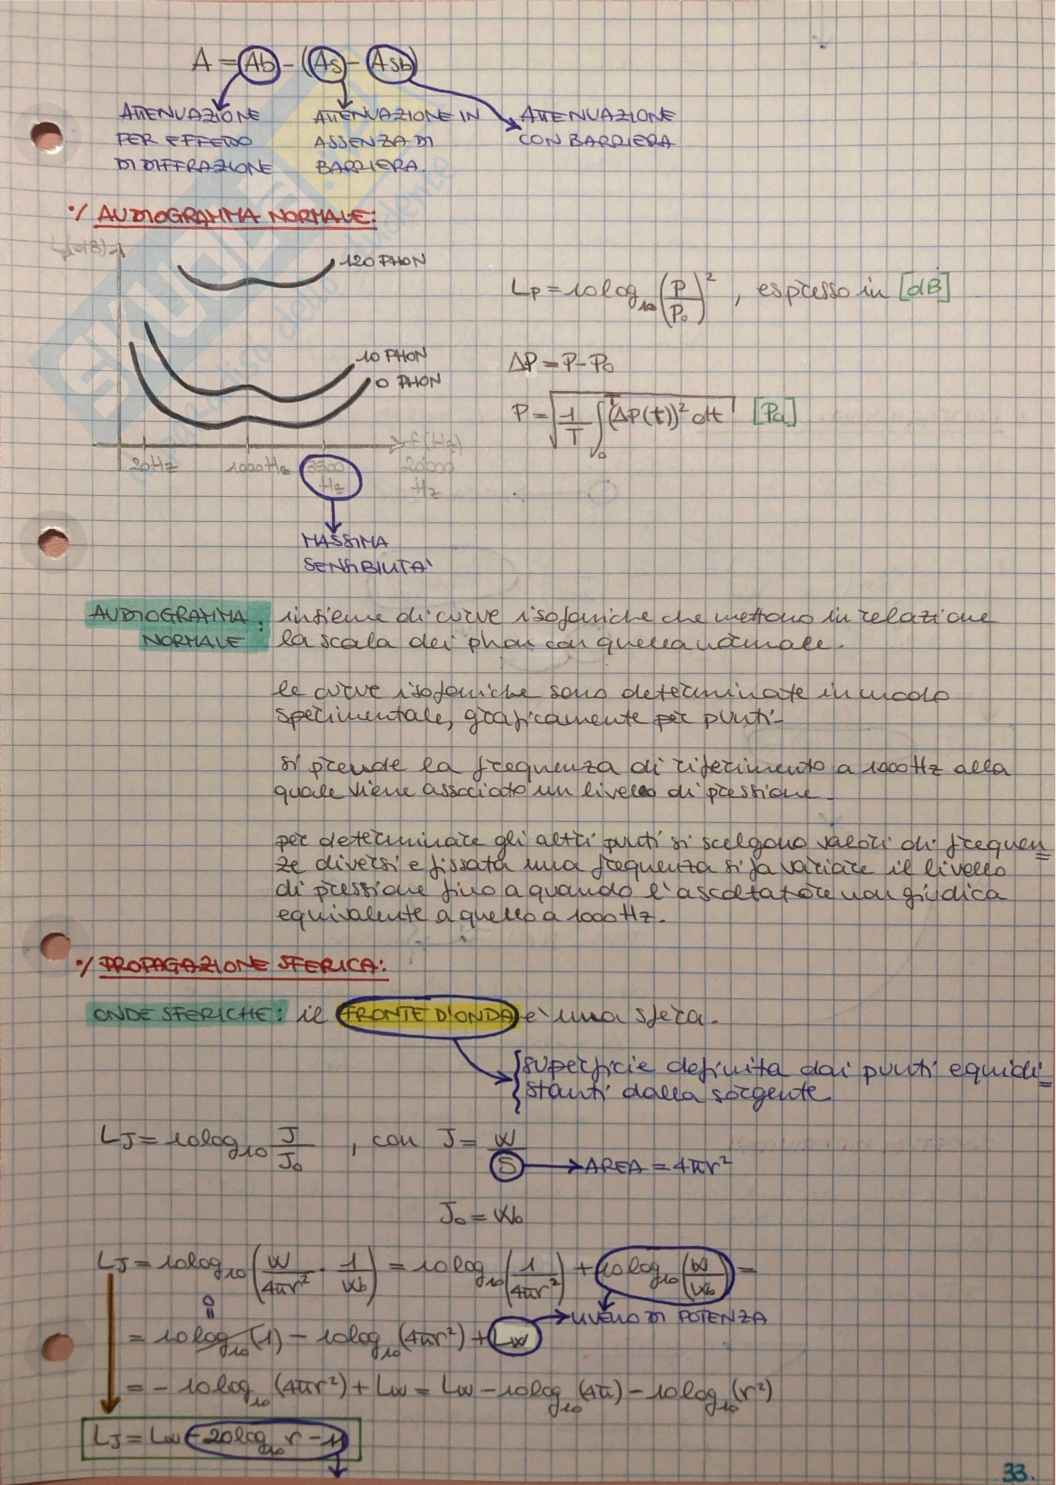 A = Ab - (As - Asb)
ATTENUAZIONE PER EFFETTO DI DIFFRAZIONE
ATTENUAZIONE IN ASSENZA DI BARRIERA.
ATTENUAZIONE CON BARRIERA
•/ AUDIOGRAMMA NORMALE:
120 PHON
10 PHON
0 PHON
f(Hz)
20Hz 1000Hz 3500 Hz 20000 Hz
MASSIMA
SENSIBILITA'
Lp = 10log₁₀ (P/P₀)², espresso in [dB]
ΔP = P - P₀
P = √(1/T ∫₀ᵀ (ΔP(t))² dt) [Pa]
AUDIOGRAMMA NORMALE: insieme di curve isofoniche che mettono in relazione
la scala dei phon con quella normale.
le curve isofoniche sono determinate in modo
sperimentale, graficamente per punti.
si prende la frequenza di riferimento a 1000Hz alla
quale viene associato un livello di pressione.
per determinare gli altri punti si scelgono valori di frequen=
ze diversi e fissata una frequenza si fa variare il livello
di pressione fino a quando l'ascoltatore non giudica
equivalente a quello a 1000Hz.
•/ PROPAGAZIONE SFERICA:
ONDE SFERICHE: il FRONTE D'ONDA e' una sfera.
superficie definita dai punti equidi=
stanti dalla sorgente
LJ = 10log₁₀ J/J₀, con J = W/S → AREA = 4πr²
J₀ = W₀
LJ = 10log₁₀ (W/4πr² · 1/W₀) = 10log₁₀ (1/4πr²) + 10log₁₀ (W/W₀) =
0
= 10log₁₀(1) - 10log₁₀(4πr²) + Lw → LIVELLO DI POTENZA
= - 10log₁₀(4πr²) + Lw = Lw - 10log₁₀(4π) - 10log₁₀(r²)
LJ = Lw - 20log₁₀ r - 11
33.